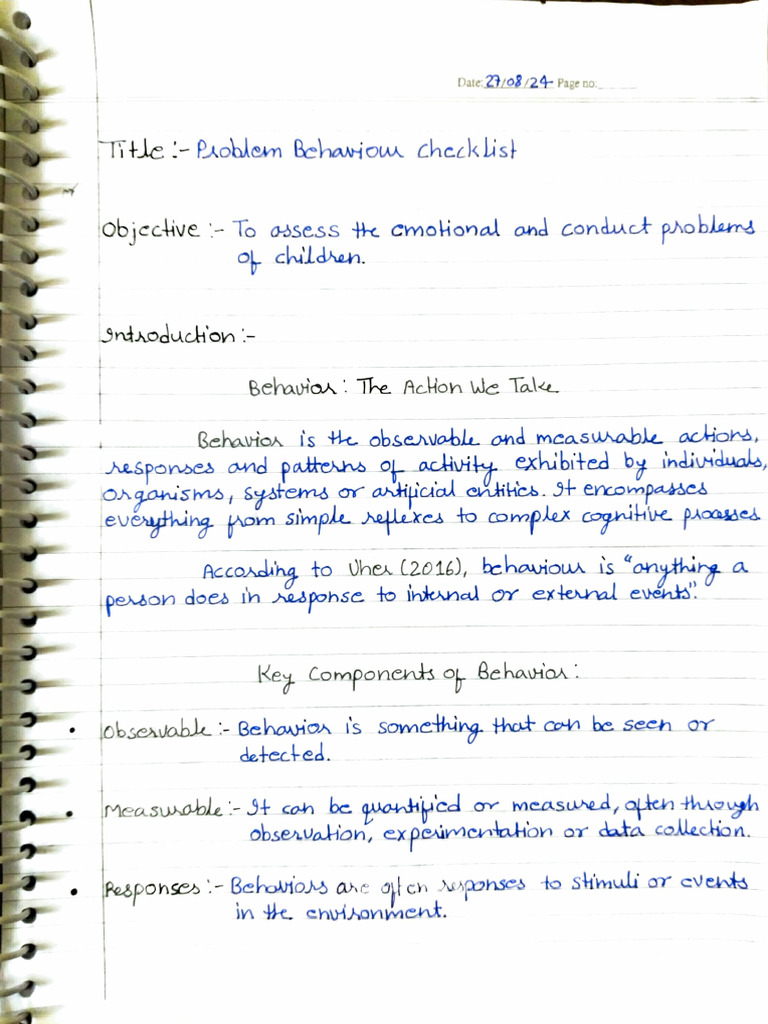 Date: 27/08/24 Page no:
Title :- Problem Behaviour checklist
Objective :- To assess the emotional and conduct problems
of children.
Introduction :-
Behavior : The Action We Take
Behavior is the observable and measurable actions,
responses and patterns of activity exhibited by individuals,
organisms, systems or artificial entities. It encompasses
everything from simple reflexes to complex cognitive processes
According to Uher (2016), behaviour is "anything a
person does in response to internal or external events".
Key Components of Behavior :
• Observable :- Behavior is something that can be seen or
detected.
• Measurable :- It can be quantified or measured, often through
observation, experimentation or data collection.
• Responses :- Behaviors are often responses to stimuli or events
in the environment.